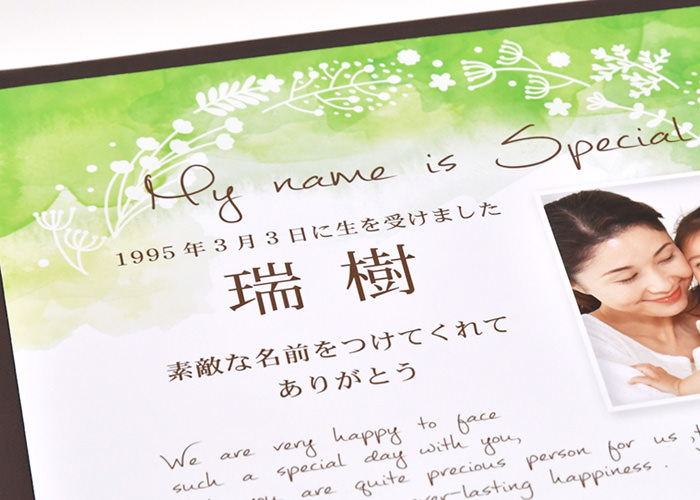 My name is Special
1995年3月3日に生を受けました
瑞樹
素敵な名前をつけてくれて
ありがとう
We are very happy to face
such a special day with you,
you are quite precious person for us,
er-lasting happiness.